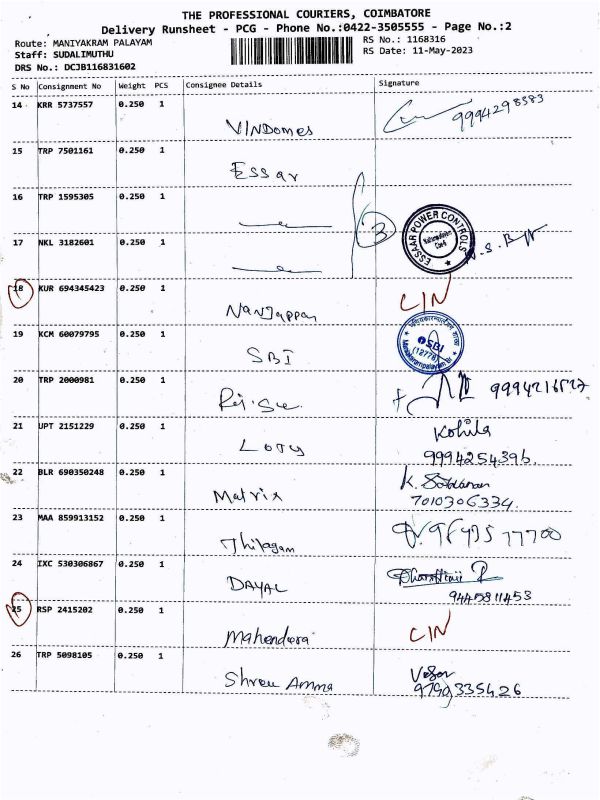 THE PROFESSIONAL COURIERS, COIMBATORE
Delivery Runsheet - PCG - Phone No.:0422-3505555 - Page No.:2
Route: MANIYAKRAM PALAYAM
RS No.: 1168316
Staff: SUDALIMUTHU
RS Date: 11-May-2023
DRS No.: DCJB116831602
S No Consignment No Weight PCS Consignee Details Signature
14 KRR 5737557 0.250 1
VINDomes 9994298383
15 TRP 7501161 0.250 1
Essar
16 TRP 1595305 0.250 1
3
ESSAAR POWER CONTROLS
17 NKL 3182601 0.250 1
18 KUR 694345423 0.250 1
Nanjappan CIN
19 KCM 60079795 0.250 1
SBI
SBI
(12778)
20 TRP 2000981 0.250 1
21 UPT 2151229 0.250 1
Kohila
9994254396.
22 BLR 690350248 0.250 1
Matrix K.
7010306334.
23 MAA 859913152 0.250 1
Thilagam
24 IXC 530306867 0.250 1
DAYAL
9445811453
25 RSP 2415202 0.250 1
Mahendera CIN
26 TRP 5098105 0.250 1
Shree Amma
9790335426